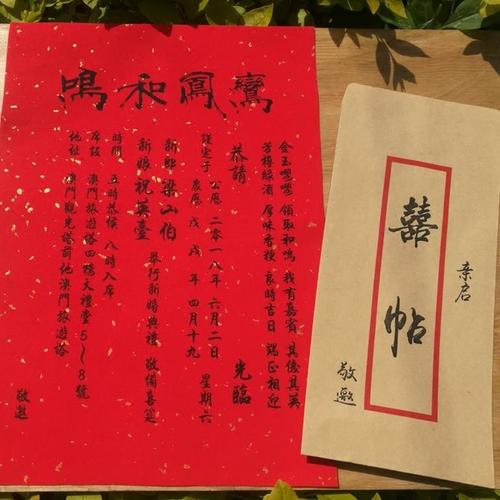 鸞鳳和鳴
金玉 領取和鳴 我有嘉賓 其億其英
芳樽綠酒 厚味香粳 良時吉日 端正相迎
恭請 光臨
謹定于
公歷 二零一八年六月二日 星期六
農歷 戊戌年四月十九
新郎 梁山伯
新娘 祝英臺
舉行新婚典禮 敬備喜筵
時間 五時恭候 八時入席
席設 澳門旅遊塔四樓大禮堂5~8號
地址 澳門觀光塔前地澳門旅遊塔
敬邀
亲启
囍帖
敬邀